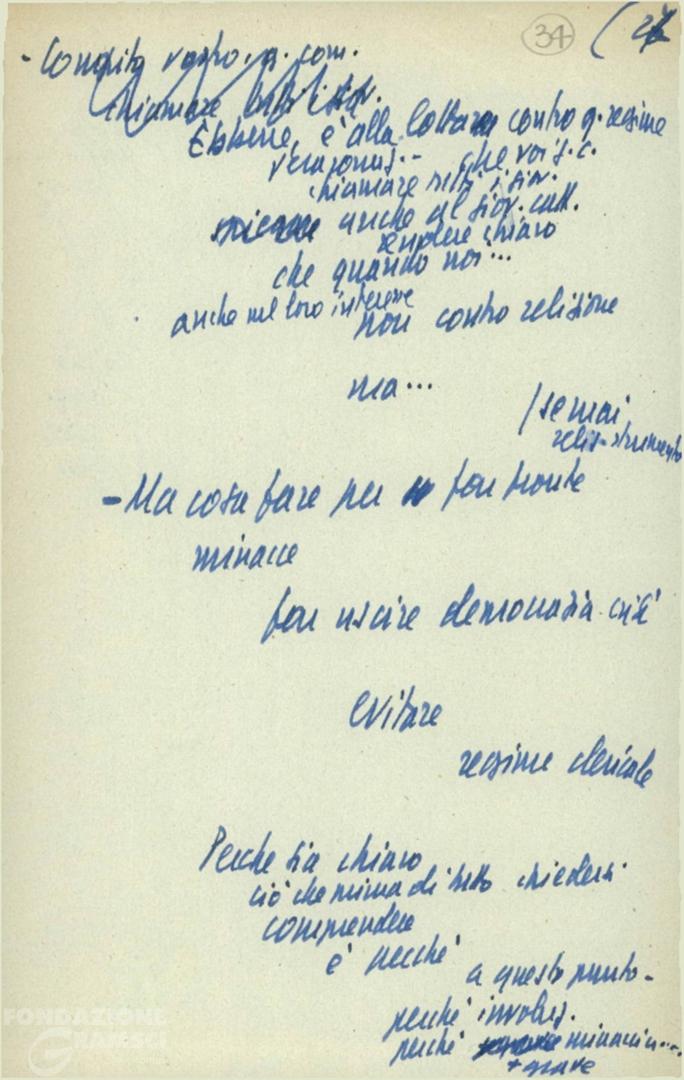 34 (27
- Compito vostro. g. com.
chiamare tutti i giov.
Ebbene, è alla lotta contro q. regime
che voi g. c.
chiamare tutti i giov.
anche al giov. catt.
rendere chiaro
che quando noi...
anche nel loro interesse
non contro religione
ma...
/ se mai
relig. strumento
- Ma cosa fare per far fronte
minacce
far uscire democrazia crisi
evitare
regime clericale
Perché sia chiaro
ciò che prima di tutto chiedersi
comprendere
è perché
a questo punto -
perché involuz.
perché minaccia...
+ grave
FONDAZIONE
GRAMSCI